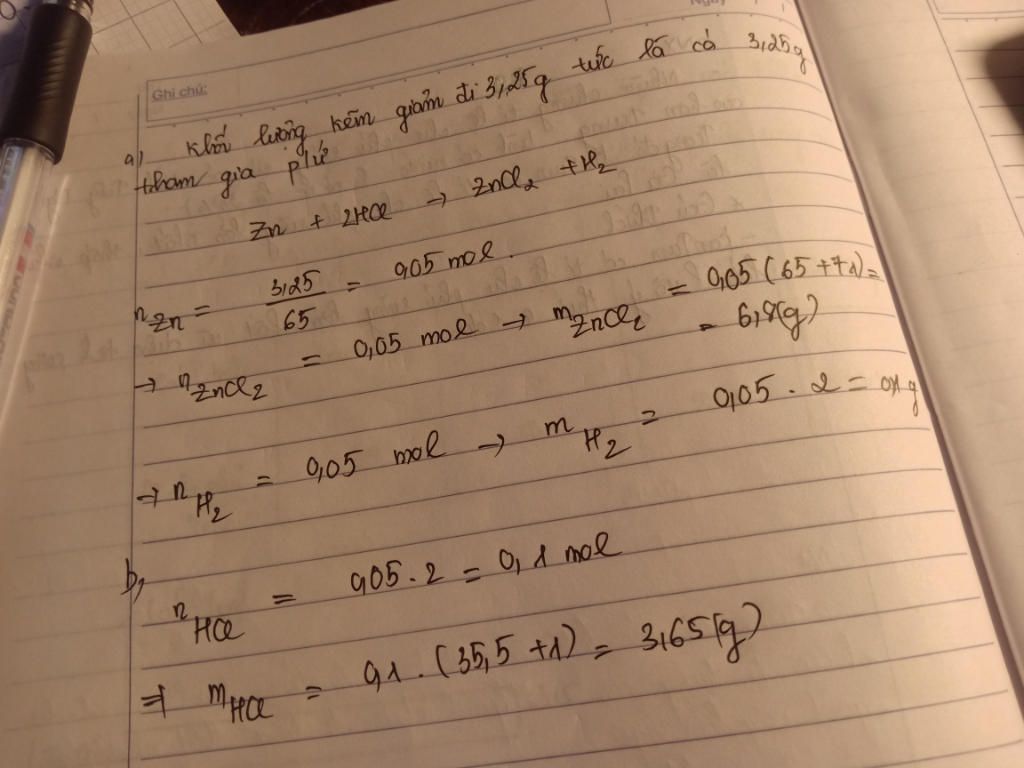 Ngày
Ghi chú:
a) khối lượng kẽm giảm đi 3,25g tức là có 3,25g
tham gia pứ
Zn + 2HCl → ZnCl₂ + H₂
n_Zn = 3,25/65 = 0,05 mol.
→ n_ZnCl₂ = 0,05 mol → m_ZnCl₂ = 0,05(65+71)=
= 6,8(g)
→ n_H₂ = 0,05 mol → m_H₂ = 0,05 . 2 = 0,1 g
b, n_HCl = 0,05 . 2 = 0,1 mol
⇒ m_HCl = 0,1 . (35,5 + 1) = 3,65(g)